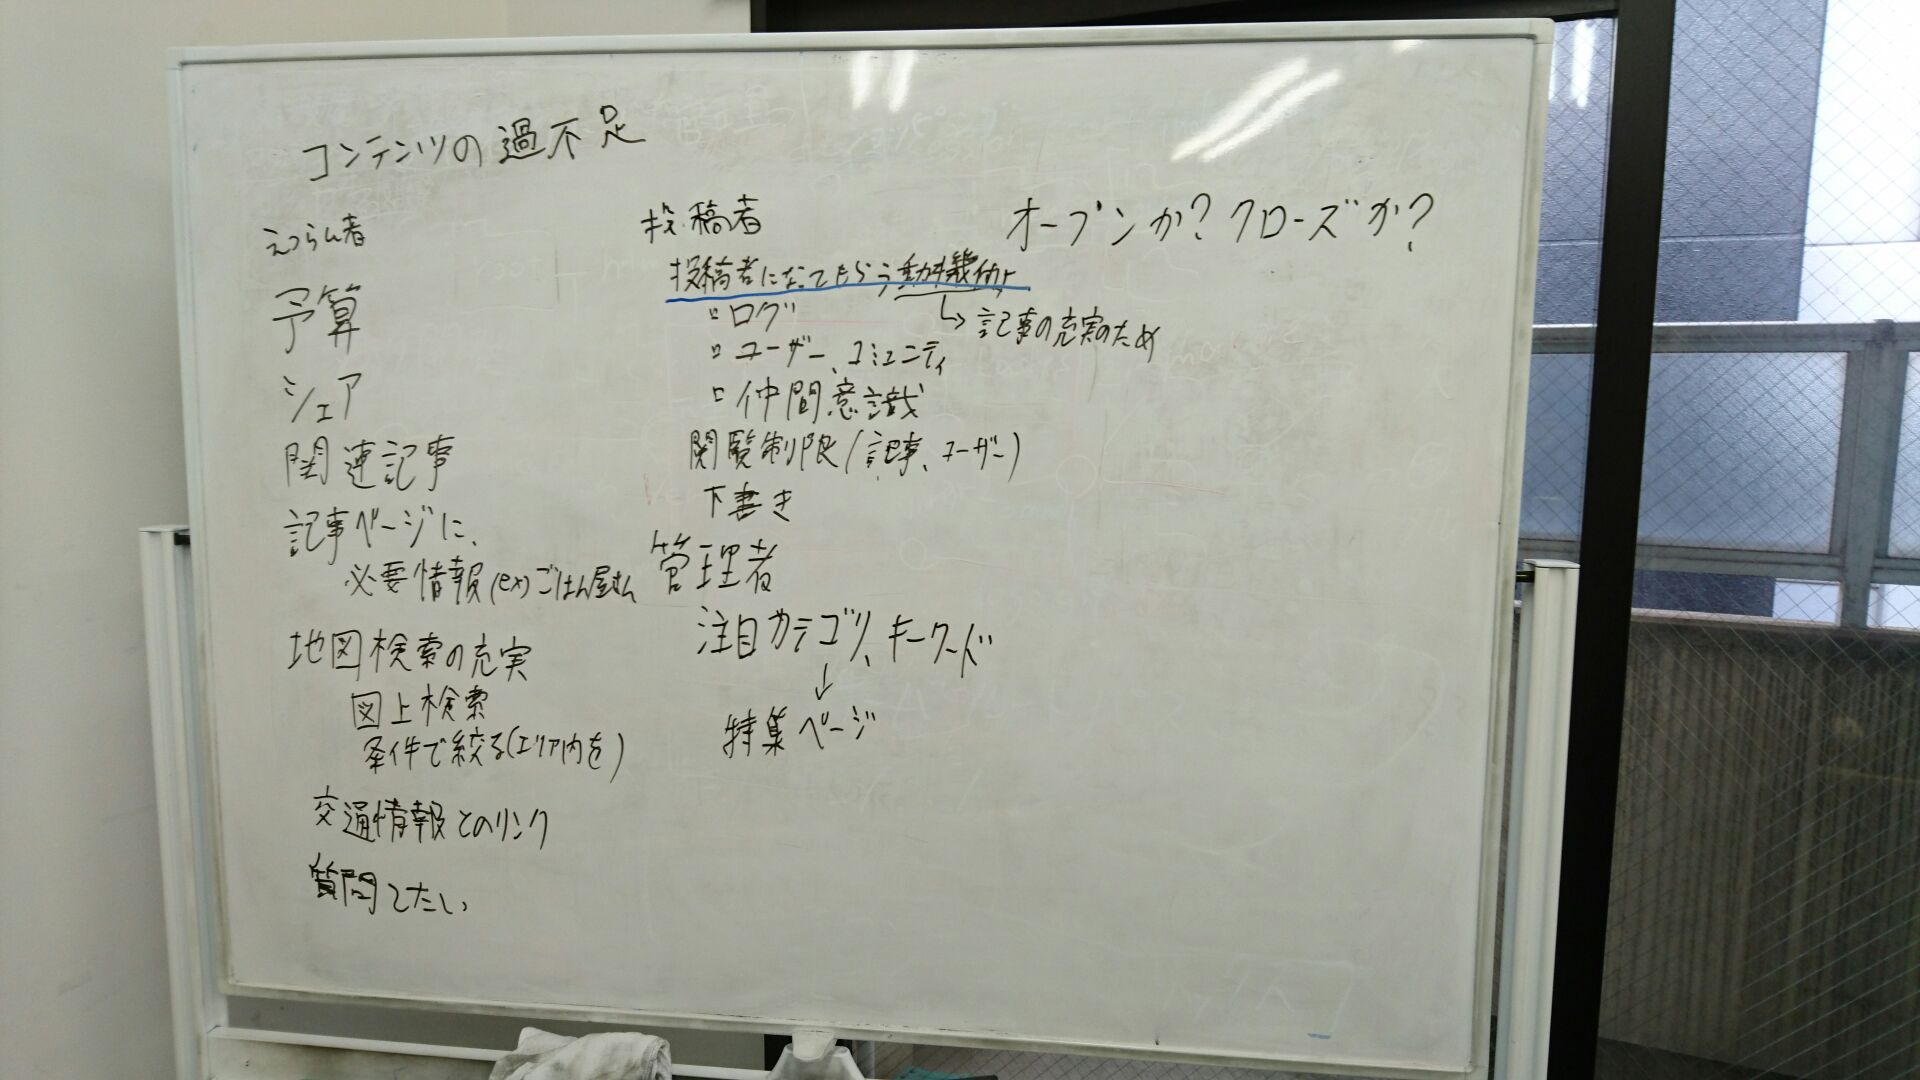 コンテンツの過不足
えつらん者
予算
シェア
関連記事
記事ページに、
必要情報(ex)ごはん屋さん
地図検索の充実
図上検索
条件で絞る(エリア内を)
交通情報とのリンク
質問したい
投稿者
投稿者になってもらう動機付け
↳記事の充実のため
▫ログ
▫ユーザー、コミュニティ
▫仲間意識
閲覧制限(記事、ユーザー)
下書き
管理者
注目カテゴリ、キーワード
↓
特集ページ
オープンか?クローズか?